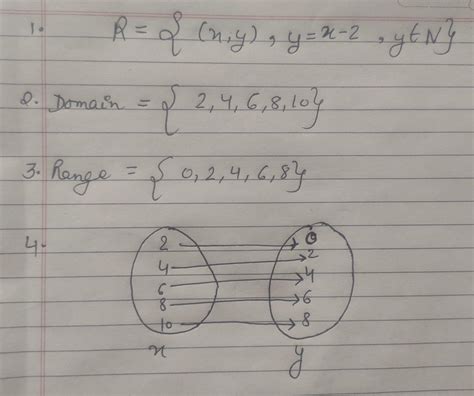 1. R = { (x,y), y=x-2, y∈N}
2. Domain = { 2,4,6,8,10}
3. Range = { 0,2,4,6,8}
4.
2 → 0
4 → 2
6 → 4
8 → 6
10 → 8
x y